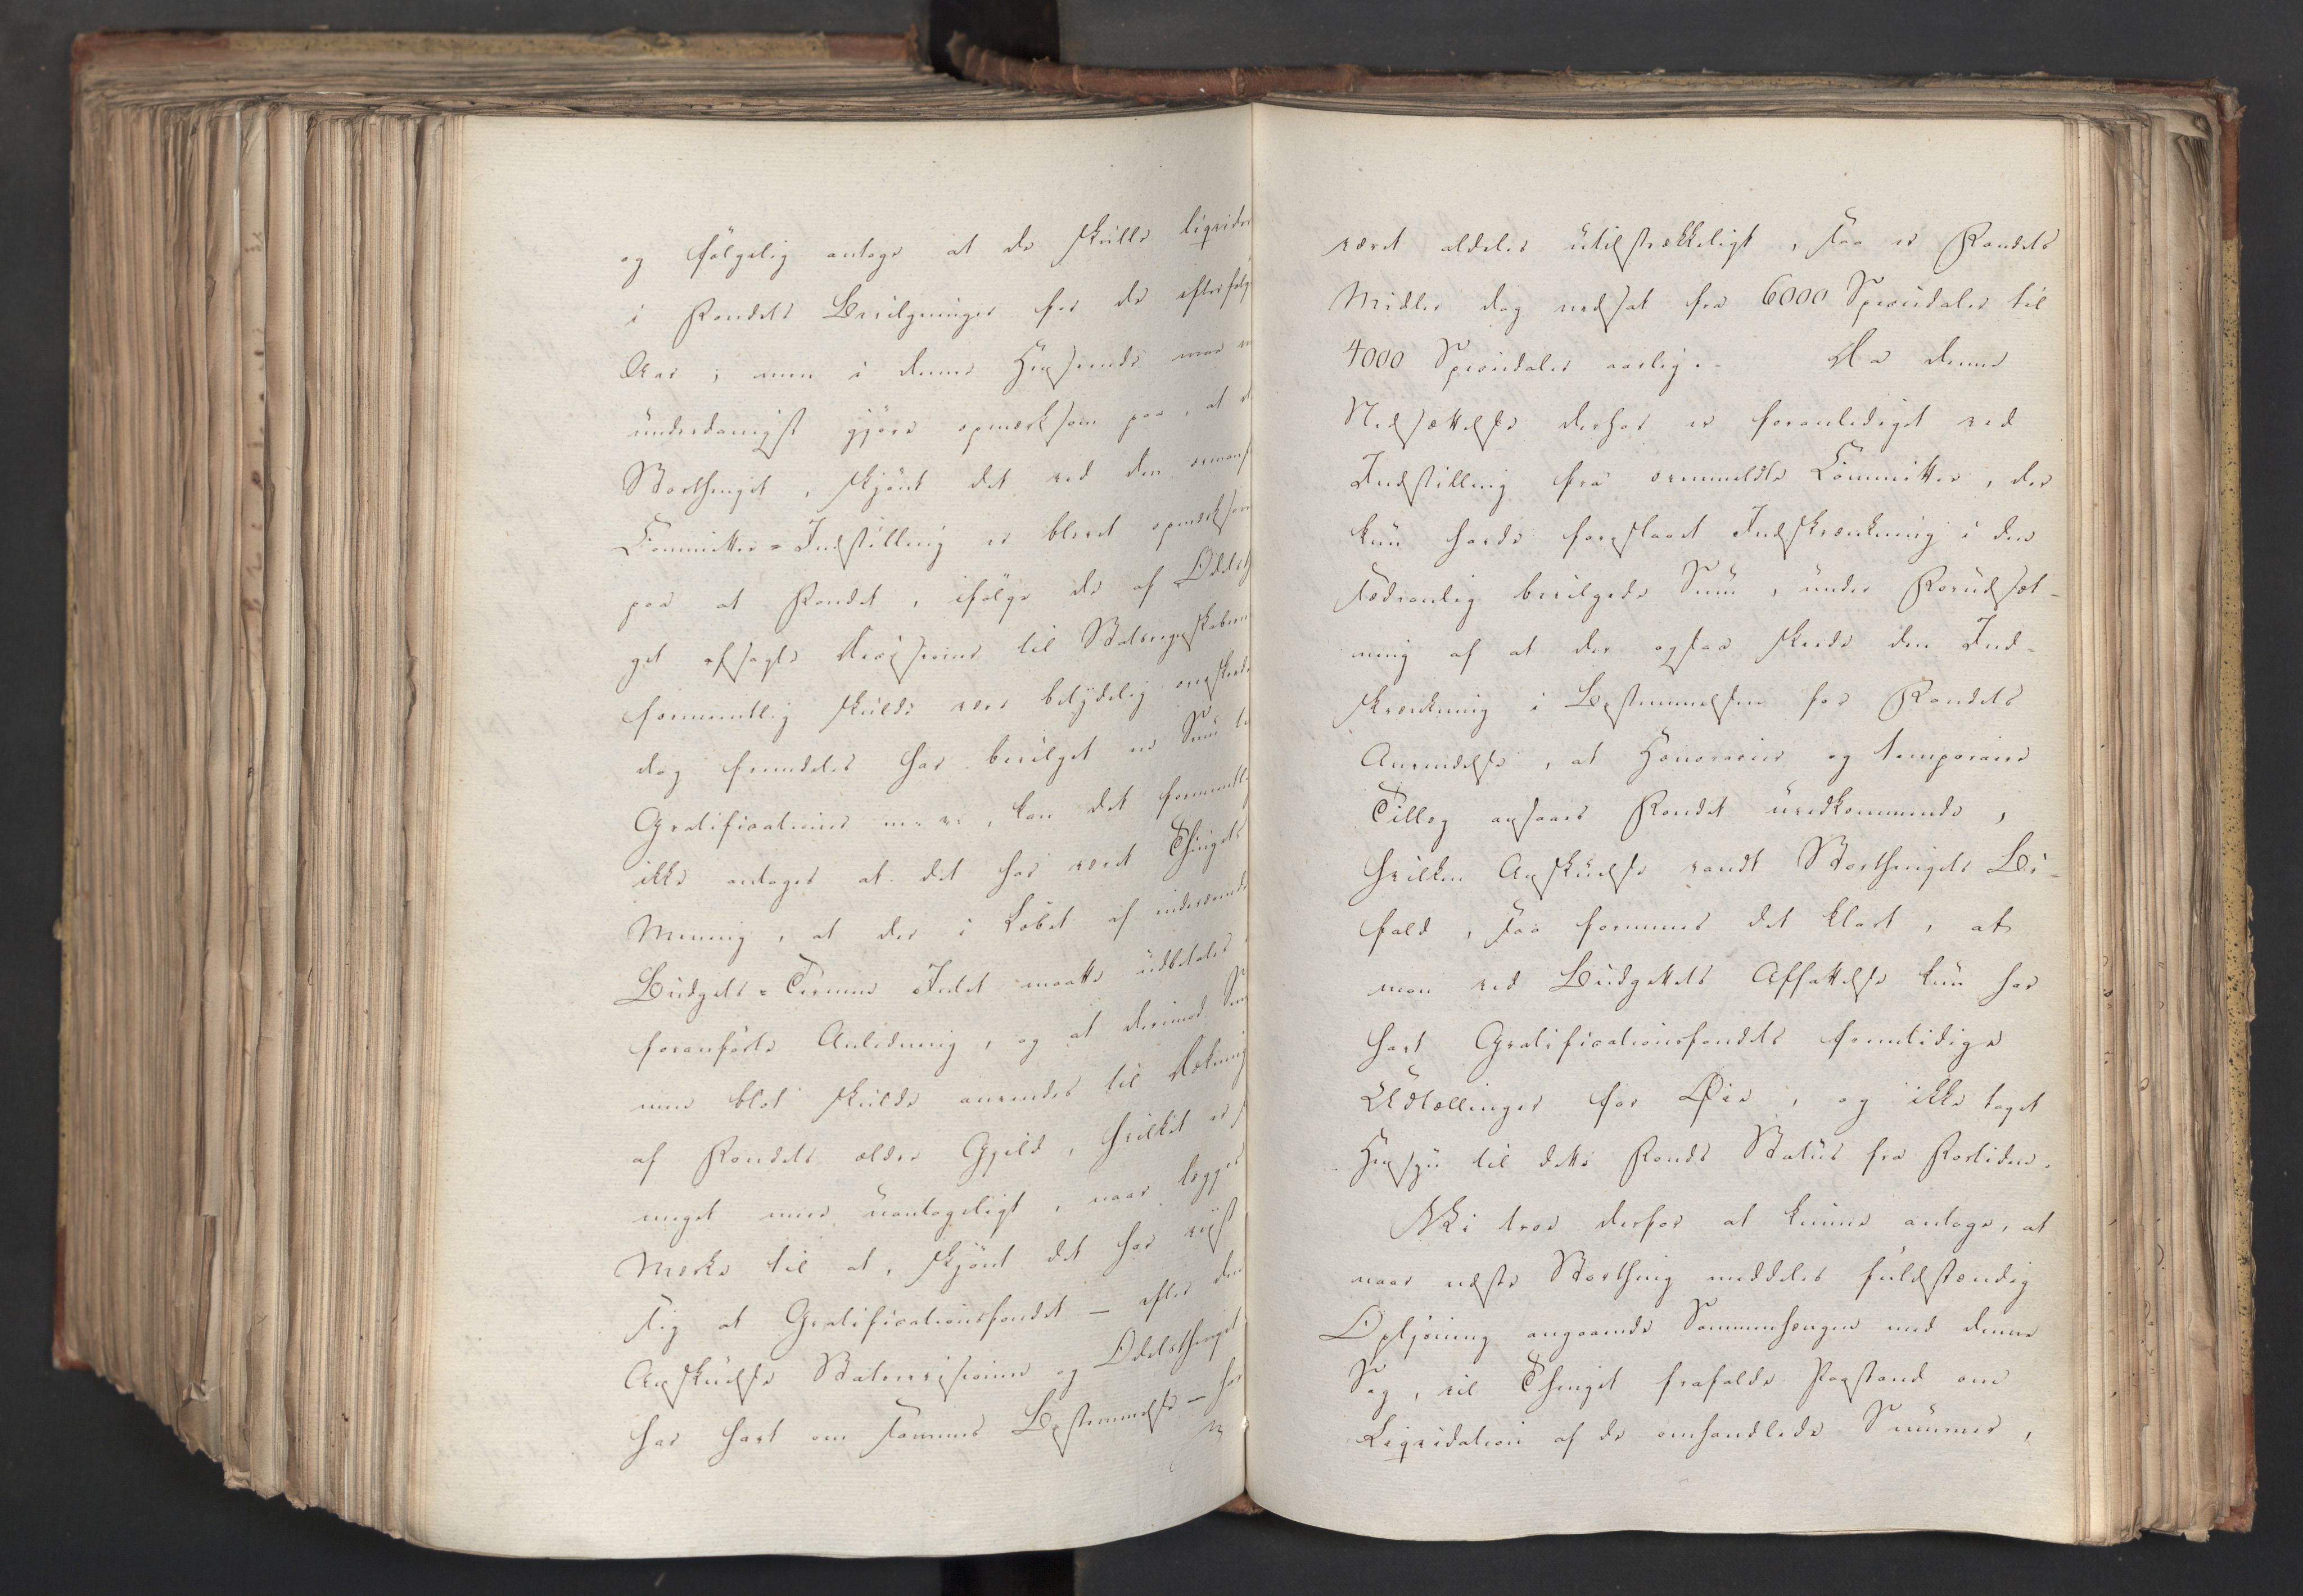 og følgelig antage at de skulle liqvider
i Fondets Bevilgninger for de efterfølg
Aar; men i denne Henseende maa v
underdanigst gjøre opmærksom paa, at d
Storthinget, skjönt det ved den ovenanf
Committee-Indstilling er blevet opmærksom
paa at Fondet, ifølge de af Odelsth
get afsagte Decisioner til Statsregnskabern
formeentlig skulde være betydelig overskred
dog fremdeles har bevilget en Sum ti
Gratificationer m. v., kan det formeentl
ikke antages at det har været Thingets
Mening, at der i Løbet af indeværende
Budgets-Termin Intet maatte udbetales
foranførte Anledning, og at derimod Sum
men blot skulde anvendes til Dækning
af Fondets ældre Gjeld, hvilket er s
meget mere uantageligt, naar lægges
Mærke til at, skjönt det har viist
sig at Gratificationsfondet – efter den
Anskuelse Statsrevisionen og Odelsthinget
har havt om sammes Bestemmelse – har
været aldeles utilstrækkeligt, saa er Fondets
Midler dog nedsat fra 6000 Speciedaler til
4000 Speciedaler aarlig. Da denne
Nedsættelse derhos er foranlediget ved
Indstilling fra ovenmeldte Committee, der
kun havde foreslaaet Indskrænkning i den
sædvanlig bevilgede Sum, under Forudsæt-
ning af at der ogsaa skeede den Ind-
skrænkning i Bestemmelsen for Fondets
Anvendelse, at Honorarier og temporaire
Tillæg ansaaes Fondet uvedkommende,
hvilken Anskuelse vandt Storthingets Bi-
fald, saa formenes det klart, at
man ved Budgettets Affattelse kun har
havt Gratificationsfondets fremtidige
Udtællinger for Øie, og ikke taget
Hensyn til dette Fonds Status fra Fortiden.
Vi troe derfor at kunne antage, at
naar næste Storthing meddeles fuldstændig
Oplysning angaaende Sammenhængen med denne
Sag, vil Thinget frafalde Paastand om
Liqvidation af de omhandlede Summer,